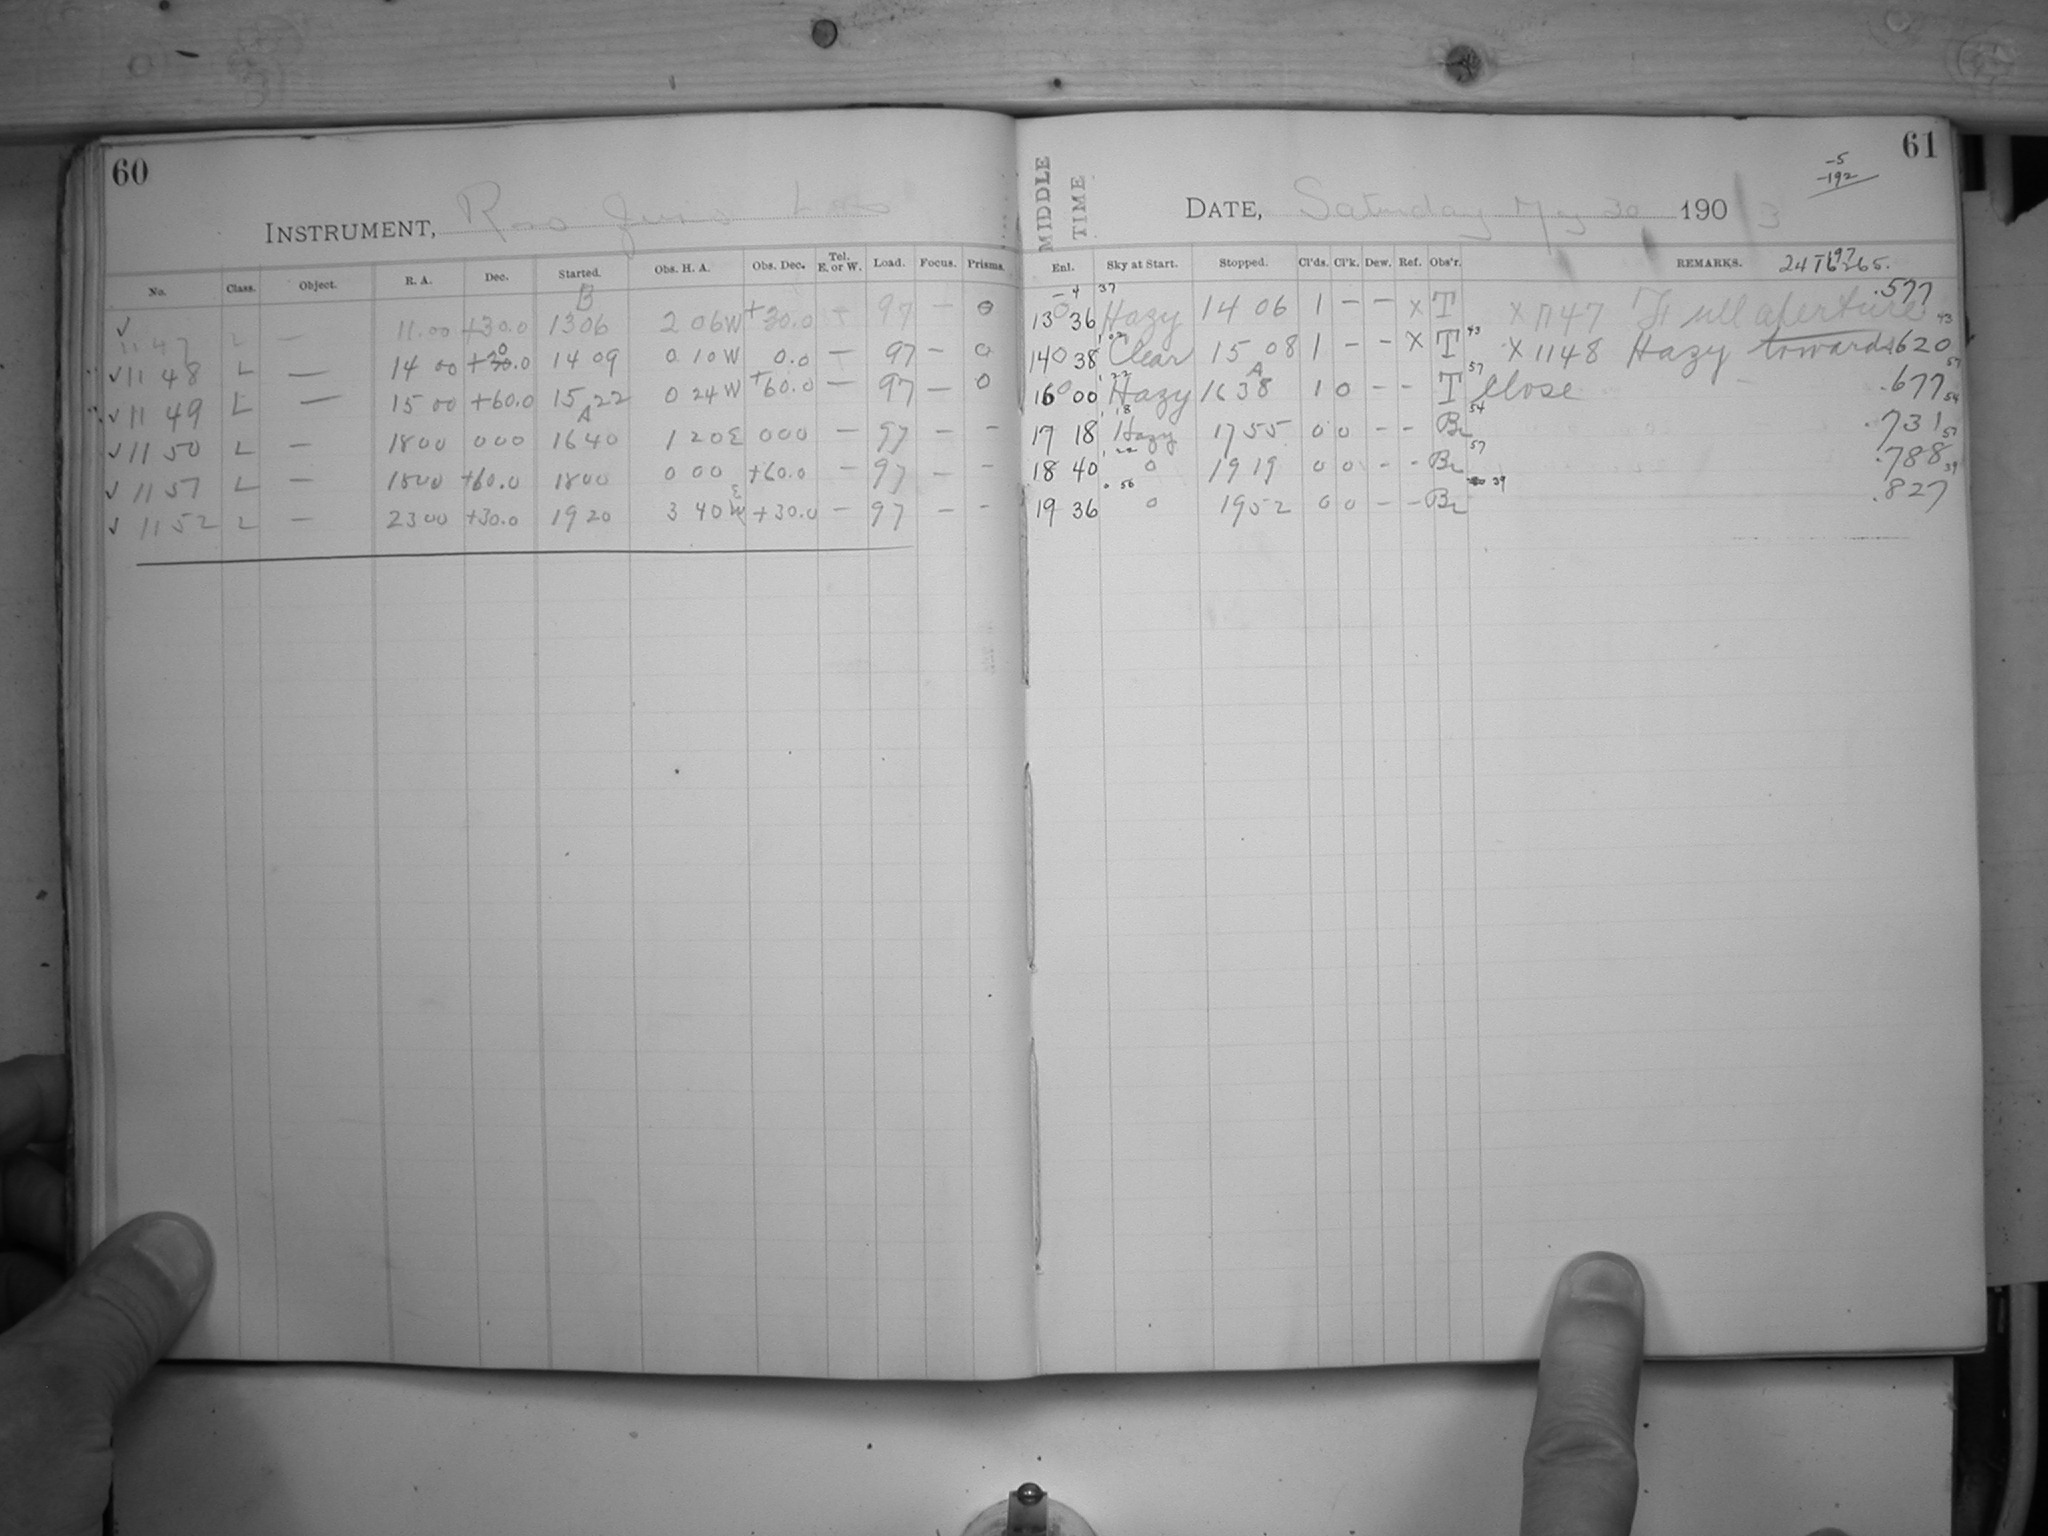 60
INSTRUMENT, Ross
No. Class. Object. R. A. Dec. Started. Obs. H. A. Obs. Dec. Tel. E. or W. Load. Focus. Prisms.
B
✓ 1147 L — 11.00 +30.0 1306 2 06W +30.0 — 97 — 0
✓ 1148 L — 14 00 0.0 14 09 0 10W 0.0 — 97 — 0
✓ 1149 L — 15 00 +60.0 15 22 0 24W +60.0 — 97 — 0
A
✓ 1150 L — 1800 000 1640 1 20E 000 — 97 — —
✓ 1151 L — 1800 +60.0 1800 0 00 +60.0 — 97 — —
✓ 1152 L — 2300 +30.0 1920 3 40E +30.0 — 97 — —
61
MIDDLE TIME
-5
-192
DATE, Saturday May 30 1903
Enl. Sky at Start. Stopped. Cl'ds. Cl'k. Dew. Ref. Obs'r. REMARKS.
13 36 Hazy 14 06 1 — — X T X 1147 Full aperture .577
14 38 Clear 15 08 1 — — X T X 1148 Hazy towards .620
A
16 00 Hazy 1638 1 0 — — T close .677
17 18 Hazy 1755 0 0 — — Br .731
18 40 0 1919 0 0 — — Br .788
19 36 0 1952 0 0 — — Br .827